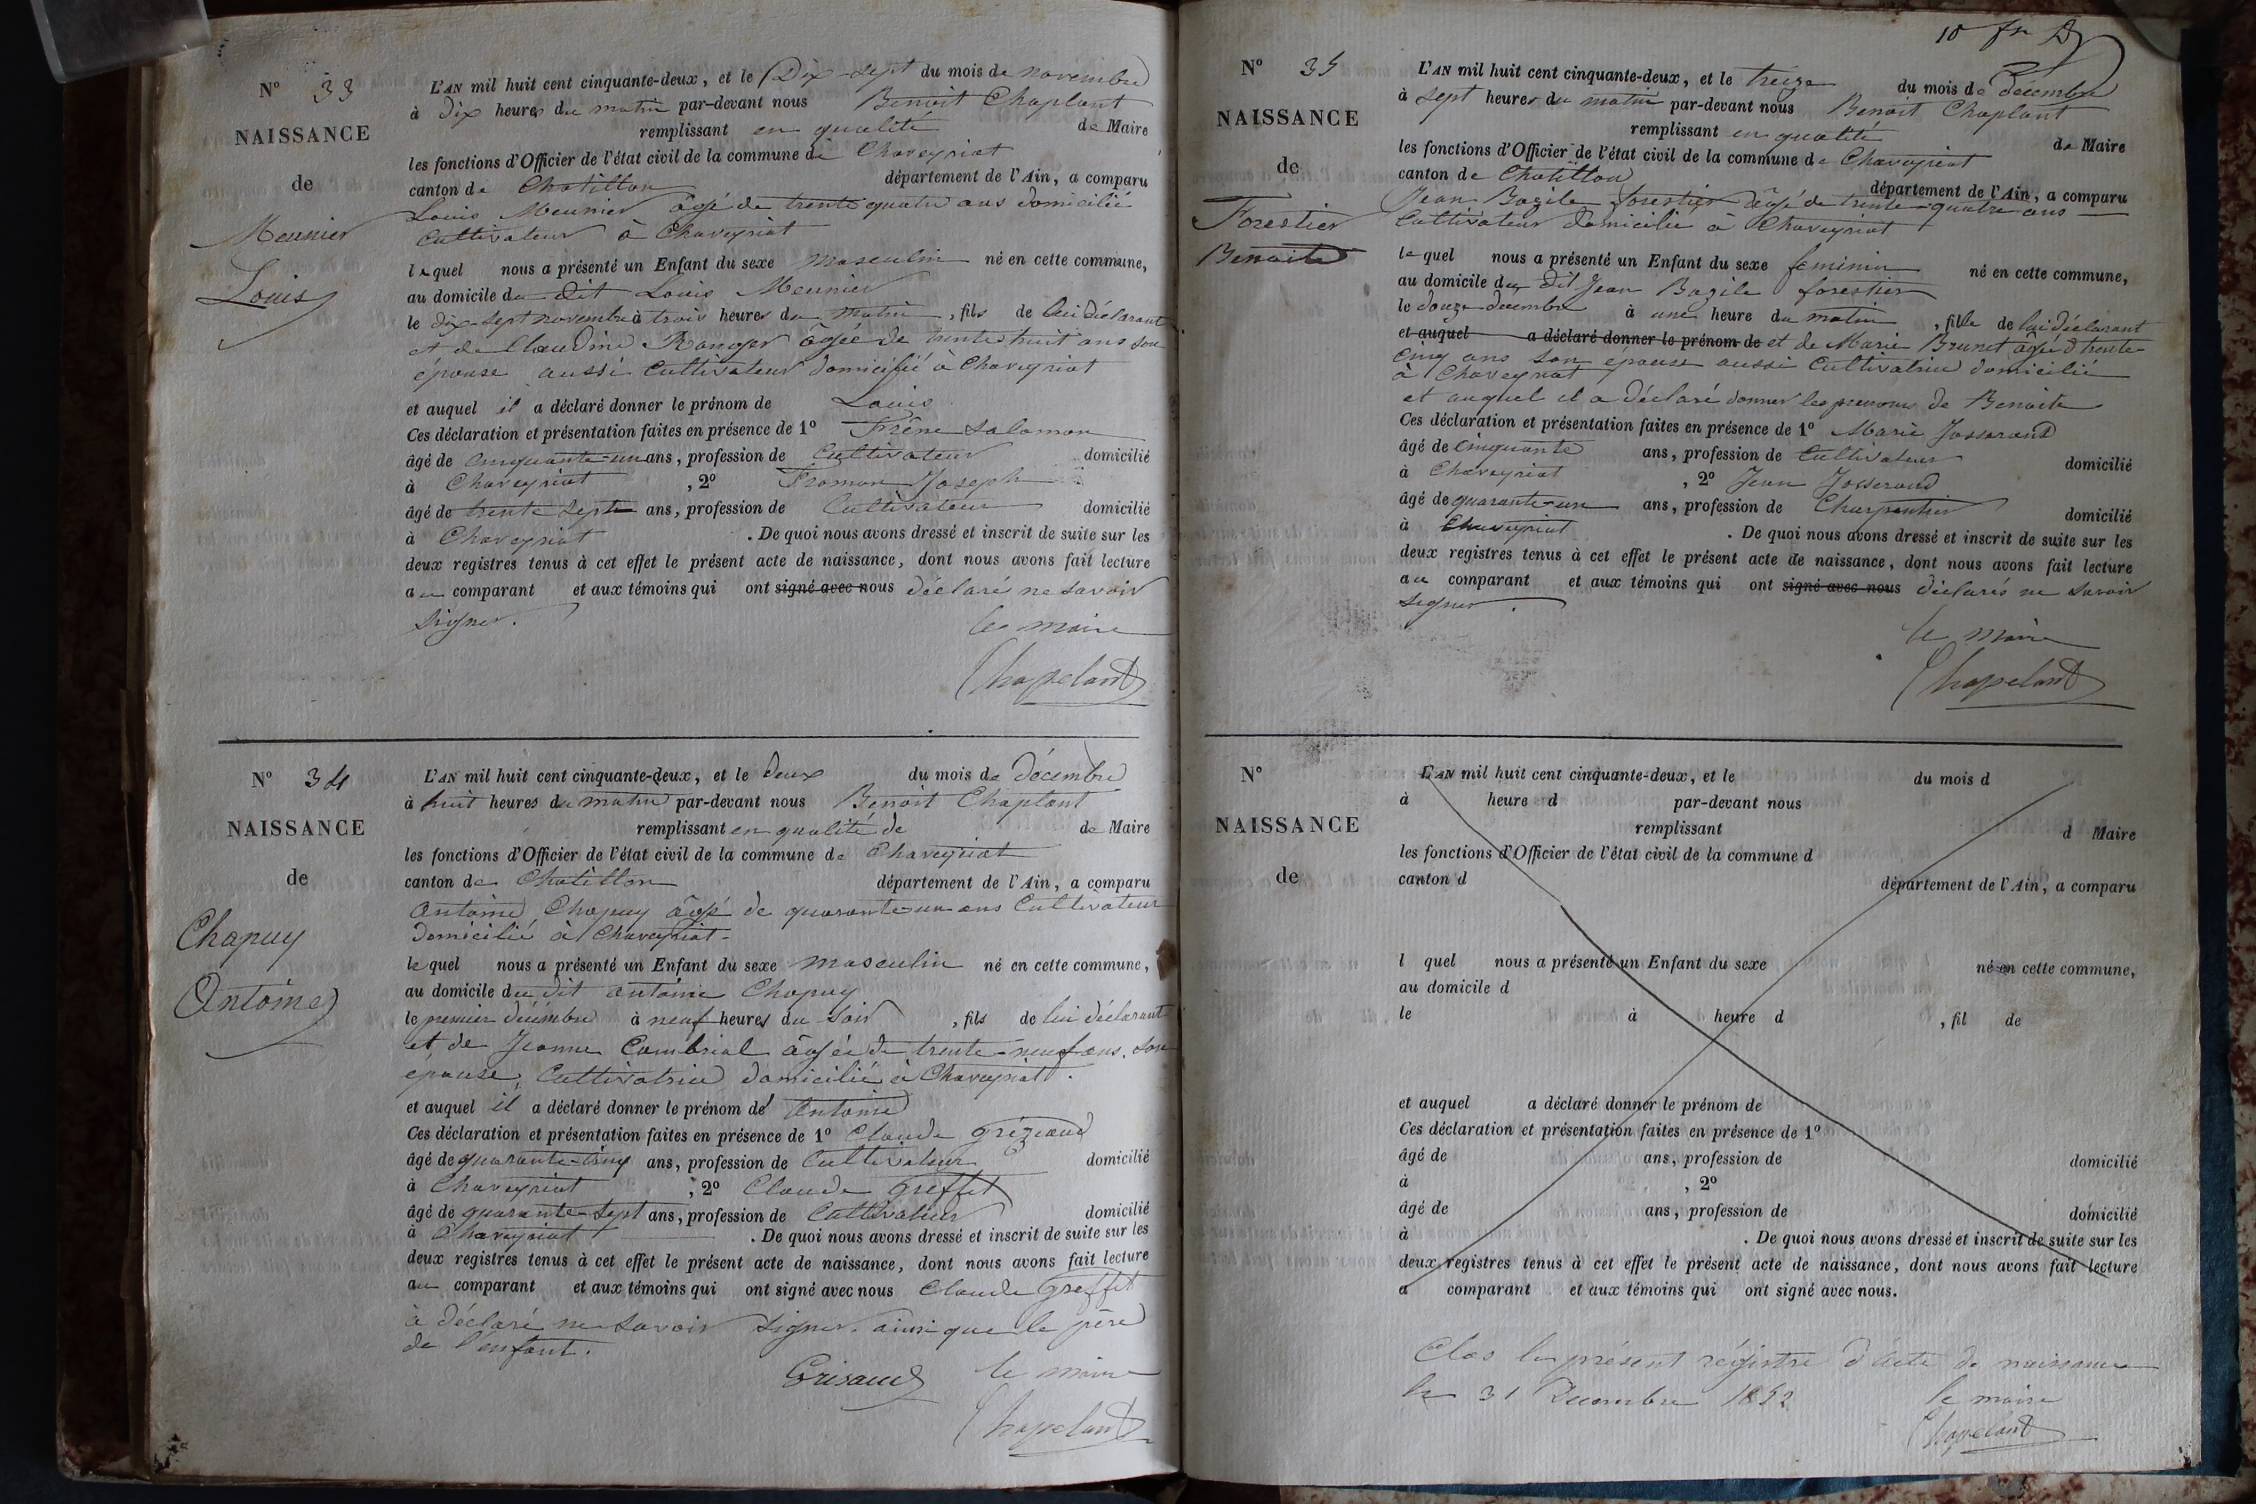 N° 33
NAISSANCE
de
Meunier
Louis
L'AN mil huit cent cinquante-deux, et le Dix-sept du mois de novembre
à Dix heures du matin par-devant nous Benoit Chaplant
remplissant en qualité de Maire
les fonctions d'Officier de l'état civil de la commune de Chaveyriat
canton de Chatillon département de l'Ain, a comparu
Louis Meunier âgé de trente quatre ans domicilié
Cultivateur à Chaveyriat
lequel nous a présenté un Enfant du sexe masculin né en cette commune,
au domicile du dit Louis Meunier
le dix-sept novembre à trois heures du matin, fils de lui déclarant
et de Claudine Ranger âgée de trente huit ans son
épouse aussi Cultivateur domicilié à Chaveyriat
et auquel il a déclaré donner le prénom de Louis
Ces déclaration et présentation faites en présence de 1° Frêne Salomon
âgé de cinquante-un ans, profession de Cultivateur domicilié
à Chaveyriat, 2° Froman Joseph
âgé de trente sept ans, profession de Cultivateur domicilié
à Chaveyriat. De quoi nous avons dressé et inscrit de suite sur les
deux registres tenus à cet effet le présent acte de naissance, dont nous avons fait lecture
au comparant et aux témoins qui ont signé avec nous déclaré ne savoir
signer.
le maire
Chapelant
N° 34
NAISSANCE
de
Chapuy
Antoine
L'AN mil huit cent cinquante-deux, et le deux du mois de décembre
à huit heures du matin par-devant nous Benoit Chaplant
remplissant en qualité de de Maire
les fonctions d'Officier de l'état civil de la commune de Chaveyriat
canton de Chatillon département de l'Ain, a comparu
Antoine Chapuy âgé de quarante-un ans Cultivateur
domicilié à Chaveyriat-
lequel nous a présenté un Enfant du sexe masculin né en cette commune,
au domicile du dit antoine Chapuy
le premier décembre à neuf heures du soir, fils de lui déclarant
et de Jeanne Combrial âgée de trente-neuf ans, son
épouse, Cultivatrice domicilié à Chaveyriat.
et auquel il a déclaré donner le prénom de antoine
Ces déclaration et présentation faites en présence de 1° Claude Grézeaud
âgé de quarante-cinq ans, profession de Cultivateur domicilié
à Chaveyriat, 2° Claude Greffet
âgé de quarante-sept ans, profession de Cultivateur domicilié
à Chaveyriat. De quoi nous avons dressé et inscrit de suite sur les
deux registres tenus à cet effet le présent acte de naissance, dont nous avons fait lecture
au comparant et aux témoins qui ont signé avec nous Claude Greffet
à déclaré ne savoir signer. ainsi que le père
de l'enfant.
Grisaud le maire
Chapelant
10 fr
N° 35
NAISSANCE
de
Forestier
Benoite
L'AN mil huit cent cinquante-deux, et le treize du mois de décembre
à sept heures du matin par-devant nous Benoit Chaplant
remplissant en qualité de Maire
les fonctions d'Officier de l'état civil de la commune de Chaveyriat
canton de Chatillon département de l'Ain, a comparu
Jean Bazile forestier âgé de trente-quatre ans
Cultivateur domicilié à Chaveyriat
lequel nous a présenté un Enfant du sexe feminin né en cette commune,
au domicile du dit Jean Bazile forestier
le douze decembre à une heure du matin, fille de lui déclarant
et auquel a déclaré donner le prénom de et de Marie Brunet âgé d trente
cinq ans son épouse aussi Cultivatrice domicilié
à Chaveyriat
et auquel il a déclaré donner les prenoms de Benoite
Ces déclaration et présentation faites en présence de 1° Marie Josserand
âgé de cinquante ans, profession de Cultivateur domicilié
à Chaveyriat, 2° Jean Josserand
âgé de quarante-un ans, profession de Charpentier domicilié
à Chaveyriat. De quoi nous avons dressé et inscrit de suite sur les
deux registres tenus à cet effet le présent acte de naissance, dont nous avons fait lecture
au comparant et aux témoins qui ont signé avec nous déclarés ne savoir
signer.
le maire
Chapelant
N°
NAISSANCE
de
L'AN mil huit cent cinquante-deux, et le du mois d
à heure d par-devant nous
remplissant d Maire
les fonctions d'Officier de l'état civil de la commune d
canton d département de l'Ain, a comparu
l quel nous a présenté un Enfant du sexe né en cette commune,
au domicile d
le à heure d, fil de
et auquel a déclaré donner le prénom de
Ces déclaration et présentation faites en présence de 1°
âgé de ans, profession de domicilié
à, 2°
âgé de ans, profession de domicilié
à. De quoi nous avons dressé et inscrit de suite sur les
deux registres tenus à cet effet le présent acte de naissance, dont nous avons fait lecture
a comparant et aux témoins qui ont signé avec nous.
Clos le présent régistre d'acte de naissance
le 31 Decembre 1852 le maire
Chapelant